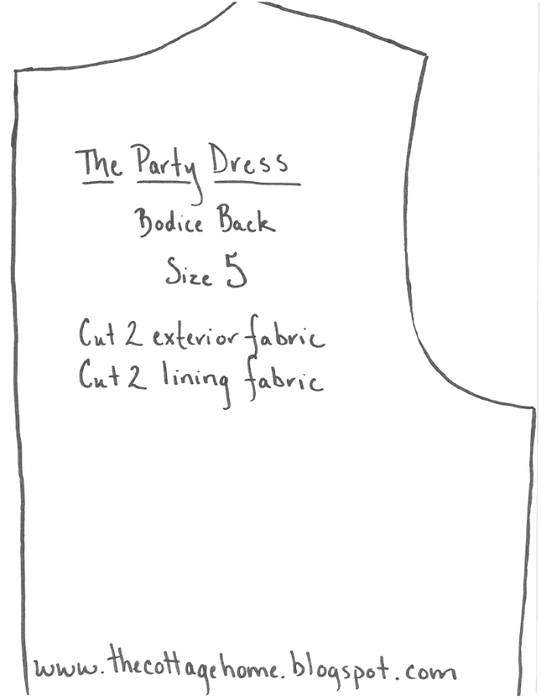 The Party Dress
Bodice Back
Size 5
Cut 2 exterior fabric
Cut 2 lining fabric
www.thecottagehome.blogspot.com